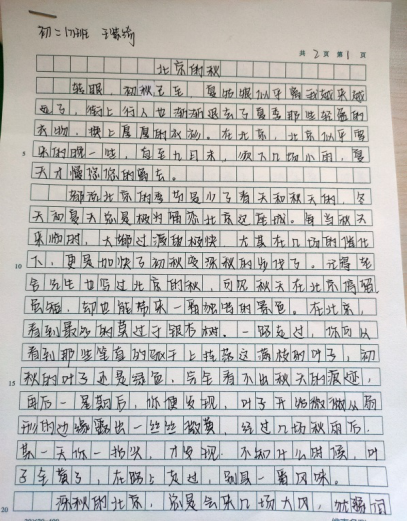 初二(7)班
共 2 页 第 1 页
北京的秋
转眼,初秋了至,夏的炎似乎离我越来越
远了,街上行人也渐渐退去了夏季那些轻薄的
衣物,换上厚厚的秋衫。在北京,北京似乎要
来的晚一些,直至九月末,须大几场小雨,夏
天才慢悠悠的离去。
5
北京的季节是少了春天和秋天的,冬
天和夏天总是极为偏爱北京这座城。每当秋天
来临时,大都过渡的极快,尤其在几场雨催化
下,更是加快了初秋变深秋的步伐了。记得老
10
舍先生也写过北京的秋,可见秋天在北京
短,却也能带来一番独特的景色。在北京,
看到最多的莫过于银杏树,一路走过,你可以
看到那些笔直的枝干上挂落这满枝的叶子,初
秋的叶子还是绿色,完全看不出秋天的痕迹,
15
再后一星期后,你便发现,叶子开始微微从扇
形的边缘露出一丝丝微黄,经过几场秋雨后,
某一天你一抬头,才发现,不知什么时候,叶
子全黄了,在路上走过,别具一番风味。
深秋的北京,总是会来几场大风,
20